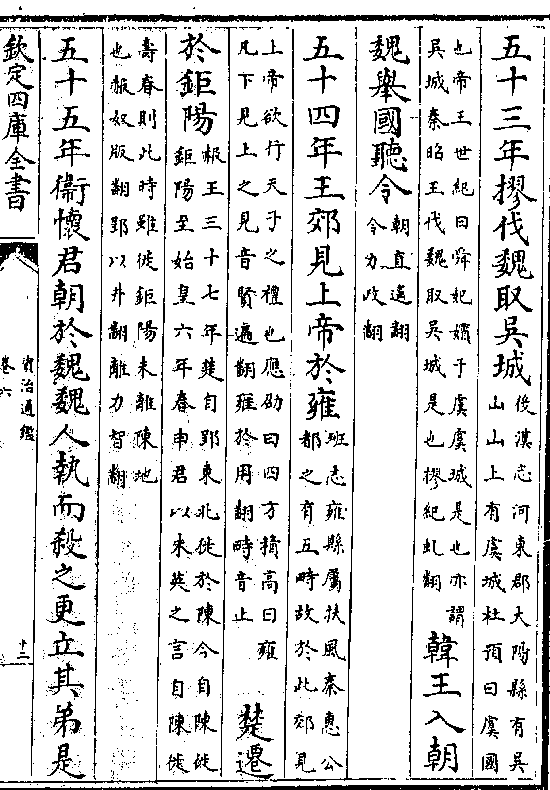 五十三年摎伐魏取吳城
後漢志河東郡大陽縣有吳
山山上有虞城杜預曰虞國
也帝王世紀曰舜妃嬪于虞虞城是也亦謂
吳城秦昭王伐魏取吳城是也摎紀虬翻
韓王入朝
魏舉國聽令
朝直遙翻
令力政翻
五十四年王郊見上帝於雍
班志雍縣屬扶風秦惠公
都之有五畤故於此郊見
上帝欲行天子之禮也應劭曰四方積高曰雍
凡下見上之見音賢遍翻雍於用翻畤音止
楚遷
於鉅陽
赧王三十七年楚自郢東北徙於陳今自陳徙
鉅陽至始皇六年春申君以朱英之言自陳徙
壽春則此時雖徙鉅陽未離陳地
也赧奴版翻郢以井翻離力智翻
五十五年衞懷君朝於魏魏人執而殺之更立其弟是
欽定四庫全書
資治通鑑
卷六
十二